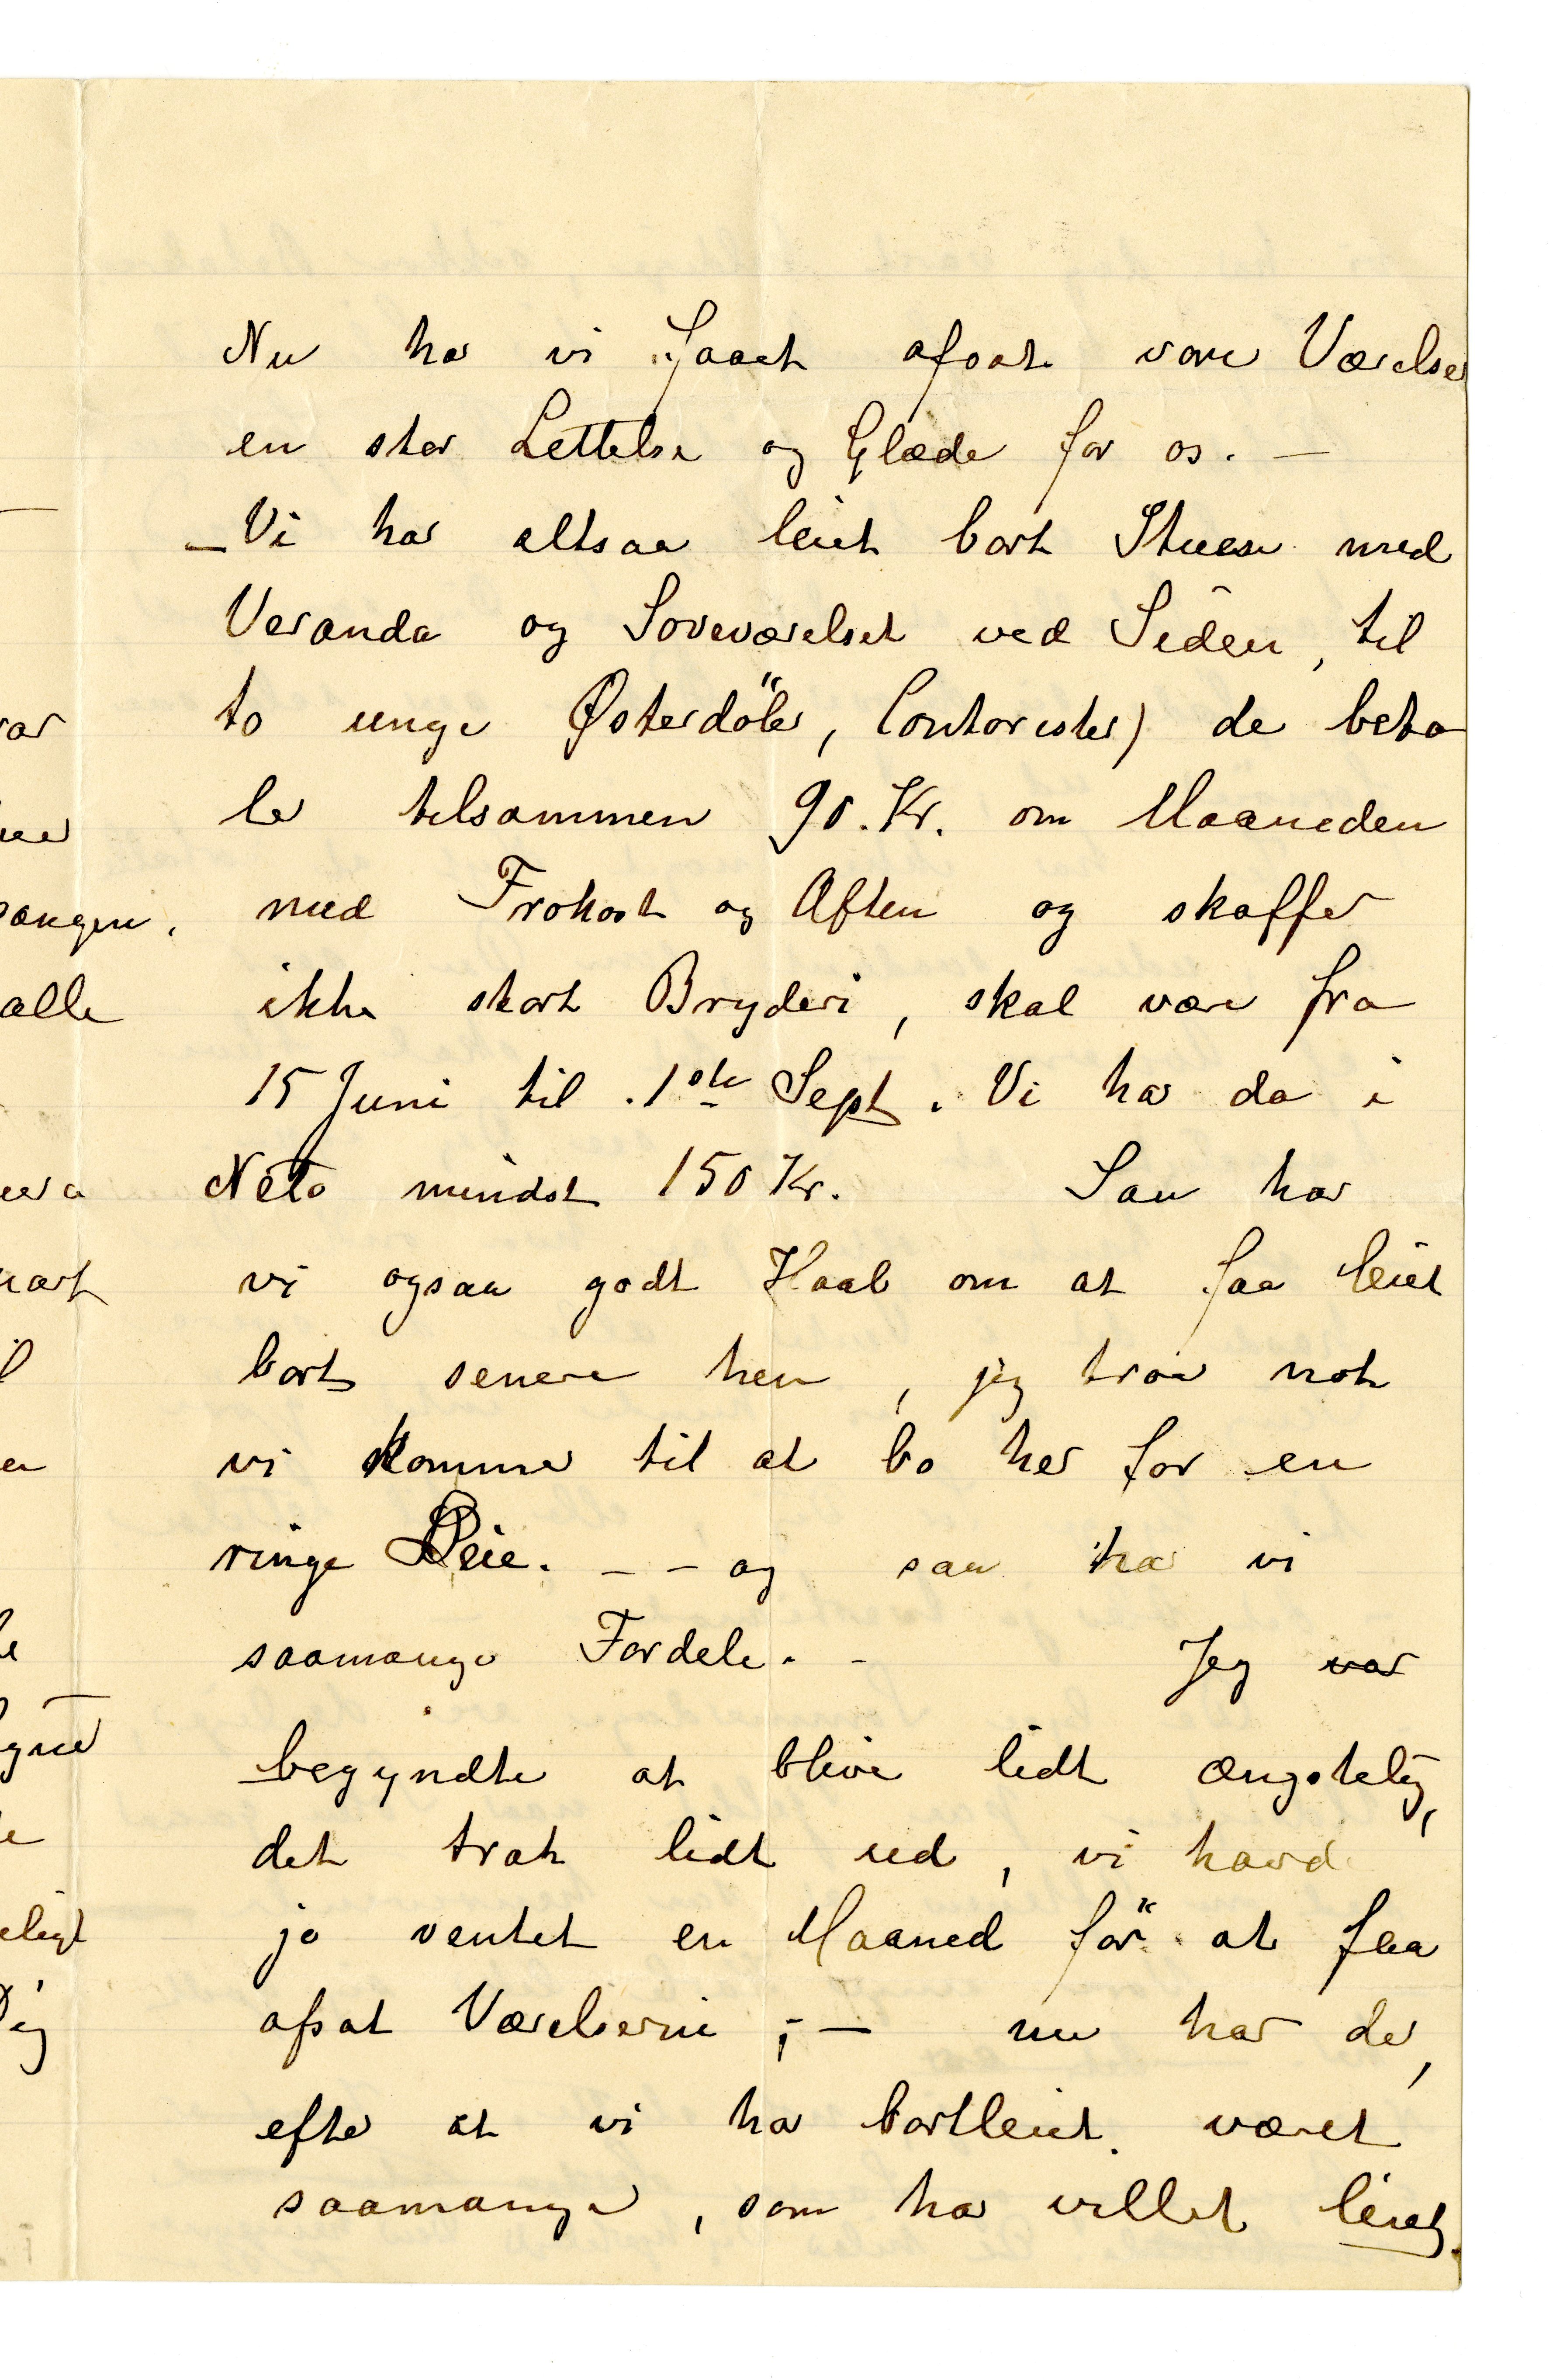 Nu har vi faaet afsat vore Værelser
en stor Lettelse og Glæde for os. —
— Vi har altsaa leiet bort Stuen med
Veranda og Soveværelset ved Siden, til
to unge Østerdöler, Contorister) de beta
ler tilsammen 90. Kr. om Maaneden
med Frokost og Aften og skaffer
ikke stort Bryderi, skal være fra
15 Juni til 1ste Sept. Vi har da i
Neto mindst 150 Kr. Saa har
vi ogsaa godt Haab om at faa leiet
bort senere hen, jeg tror nok
vi kommer til at bo her for en
ringe Leie. – – og saa har vi
saamange Fordele. – Jeg var
begyndte at blive lidt ængstelig,
det trak lidt ud, vi havde
jo ventet en Maaned för at faa
afsat Værelserne ; — nu har der,
efter at vi har bortleiet. været
saamange, som har villet leiet.
alle